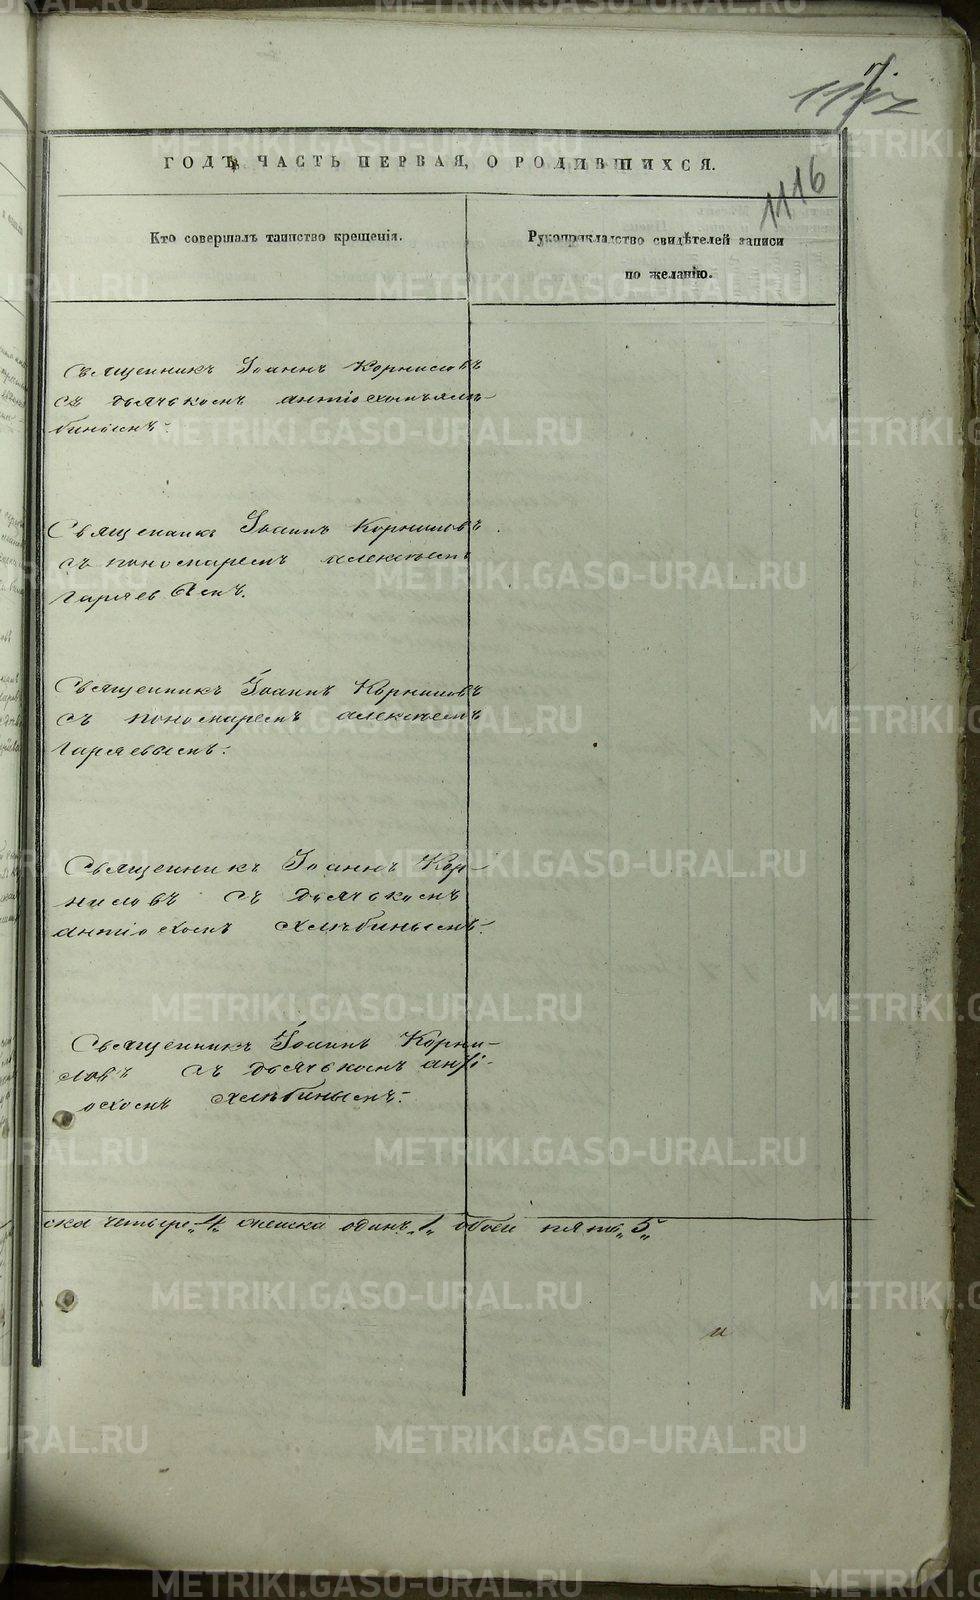 7.
1116
ГОДЪ, ЧАСТЬ ПЕРВАЯ, О РОДИВШИХСЯ.
Кто совершалъ таинство крещенія.
Рукоприкладство свидѣтелей записи
по желанію.
Священникъ Іоаннъ Корниловъ
съ дьячькомъ антіохомъ
биным.
Священикъ Іоаннъ Корниловъ
съ пономаремъ алексѣемъ
Гаряевымъ.
Священникъ Іоаннъ Корниловъ
съ пономаремъ алексѣемъ
Гаряевымъ.
Священникъ Іоаннъ Кор-
ниловъ съ дьячькомъ
антіохомъ Хлѣбинымъ.
Священникъ Іоаннъ Корни-
ловъ съ дьячькомъ анті-
охомъ Хлѣбинымъ.
ска четыре „4„ женска одинъ „1„ обоего пять „5„
METRIKI.GASO-URAL.RU